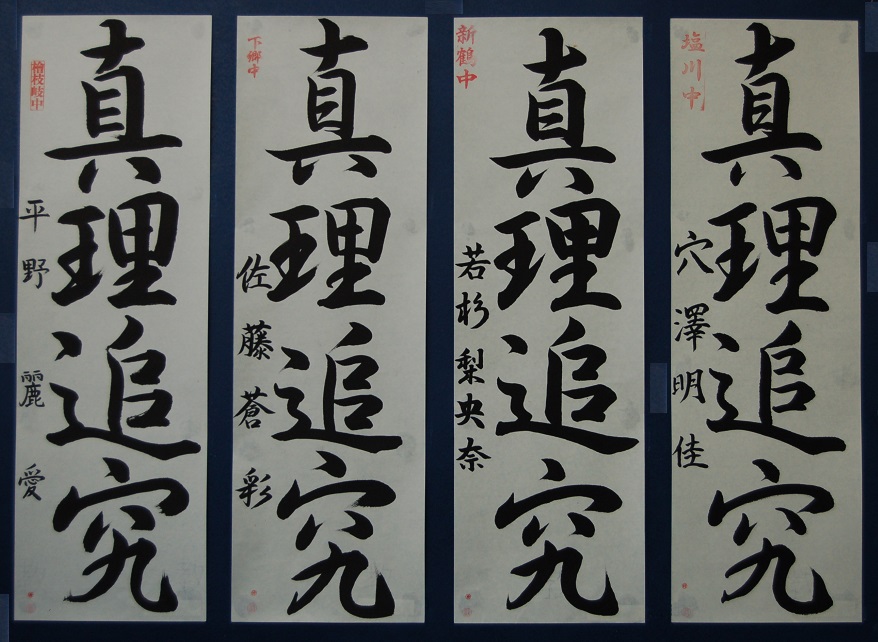 檜枝岐中
真理追究
平野麗愛
下郷中
真理追究
佐藤蒼彩
新鶴中
真理追究
若杉梨央奈
塩川中
真理追究
穴澤明佳